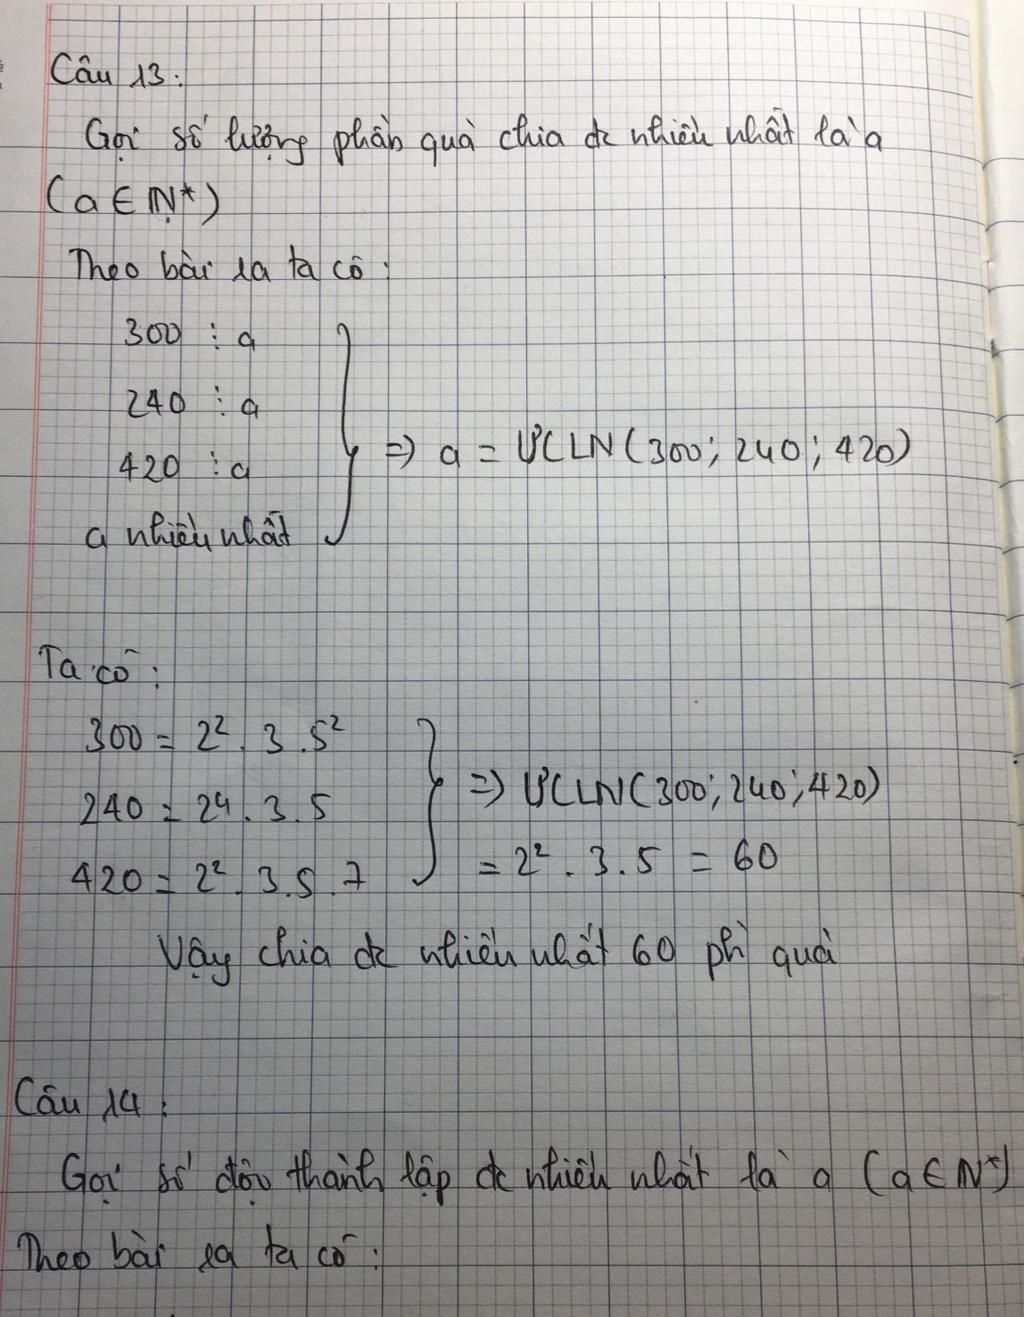 Câu 13:
Gọi số lượng phần quà chia đc nhiều nhất là a
(a ∈ N*)
Theo bài ra ta có:
300 ⋮ a
240 ⋮ a
420 ⋮ a
a nhiều nhất
=> a = ƯCLN(300; 240; 420)
Ta có:
300 = 2². 3 .5²
240 = 24. 3. 5
420 = 2². 3.5.7
=> ƯCLN(300; 240; 420)
= 2². 3. 5 = 60
Vậy chia đc nhiều nhất 60 ph quà
Câu 14:
Gọi số đội thành lập đc nhiều nhất là a (a ∈ N*)
Theo bài ra ta có: